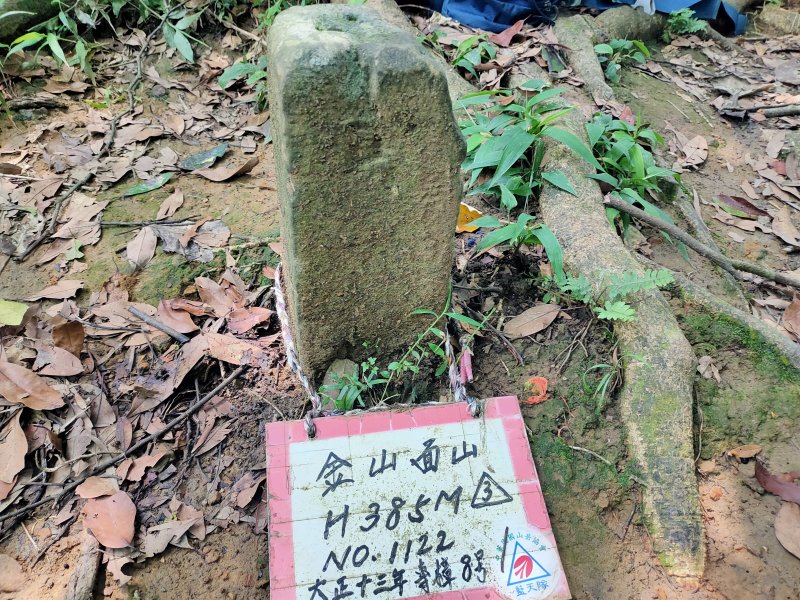 金山面山
H385M 3
NO.1122
大正十三年 樟8号
藍天隊